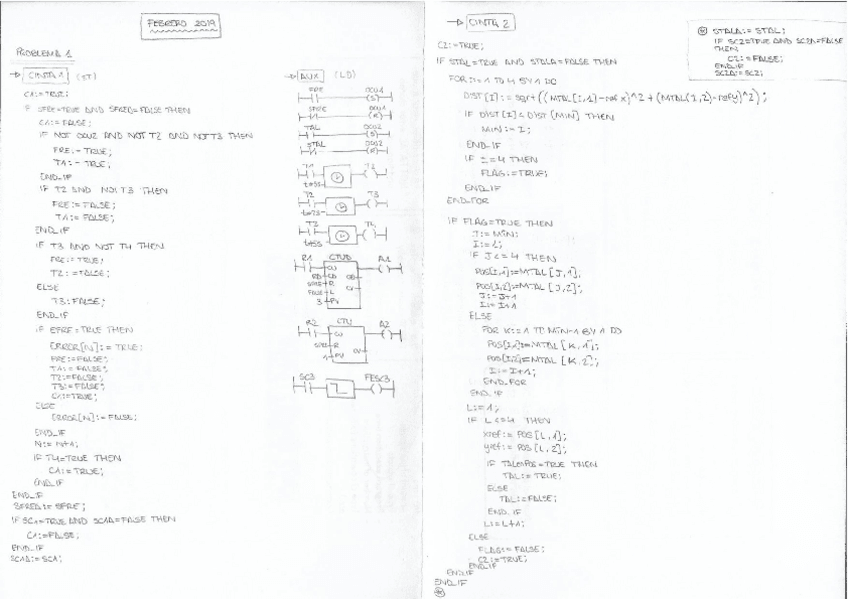 FEBRERO 2019
PROBLEMA 1
→ CINTA 1 (ST)
C1:=TRUE;
IF SFRE=TRUE AND SFREA=FALSE THEN
C1:=FALSE;
IF NOT 0002 AND NOT T2 AND NOT T3 THEN
FRE:=TRUE;
T1:=TRUE;
END_IF
IF T2 AND NOT T3 THEN
FRE:=FALSE;
T1:=FALSE;
END_IF
IF T3 AND NOT T4 THEN
FRE:=TRUE;
T2:=FALSE;
ELSE
T3:FALSE;
END_IF
IF EFRE=TRUE THEN
ERROR[N]:=TRUE;
FRE:=FALSE;
T1:=FALSE;
T2:=FALSE;
T3:=FALSE;
C1:=TRUE;
ELSE
ERROR[N]:=FALSE;
END_IF
N:=N+1;
IF T4=TRUE THEN
C1:=TRUE;
END_IF
END_IF
SFREA:=SFRE;
IF SC1=TRUE AND SC1A=FALSE THEN
C1:=FALSE;
END_IF
SC1A:=SC1;
→ AUX (LD)
FRE 0001
(S)
SFRE 0001
(R)
TAL 0002
(S)
STAL 0002
(R)
T1 T2
T2 T3
T3 T4
R1 CTUD A1
CU
CD
R
L
3 PV
R2 CTU A2
CU
R
PV
SC3 FESC3
→ CINTA 2
C2:=TRUE;
IF STAL=TRUE AND STALA=FALSE THEN
FOR I:=1 TO 4 BY 1 DO
DIST[I]:=sqrt((MTAL[I,1]-refx)^2+(MTAL(I,2)-refy)^2);
IF DIST[I]<DIST[MIN] THEN
MIN:=I;
END_IF
IF I=4 THEN
FLAG:=TRUE;
END_IF
END_FOR
IF FLAG=TRUE THEN
J:=MIN;
I:=1;
IF J<=4 THEN
POS[I,1]:=MTAL[J,1];
POS[I,2]:=MTAL[J,2];
J:=J+1
I:=I+1
ELSE
FOR K:=1 TO MIN-1 BY 1 DO
POS[I,1]:=MTAL[K,1];
POS[I,2]:=MTAL[K,2];
I:=I+1;
END_FOR
END_IF
L:=1;
IF L<=4 THEN
xref:=POS[L,1];
yref:=POS[L,2];
IF TALENPOS=TRUE THEN
TAL:=TRUE;
ELSE
TAL:=FALSE;
END_IF
L:=L+1;
ELSE
FLAG:=FALSE;
C2:=TRUE;
END_IF
END_IF
END_IF
⊛
⊛ STALA:=STAL;
IF SC2=TRUE AND SC2A=FALSE
THEN
C2:=FALSE;
END_IF
SC2A:=SC2;